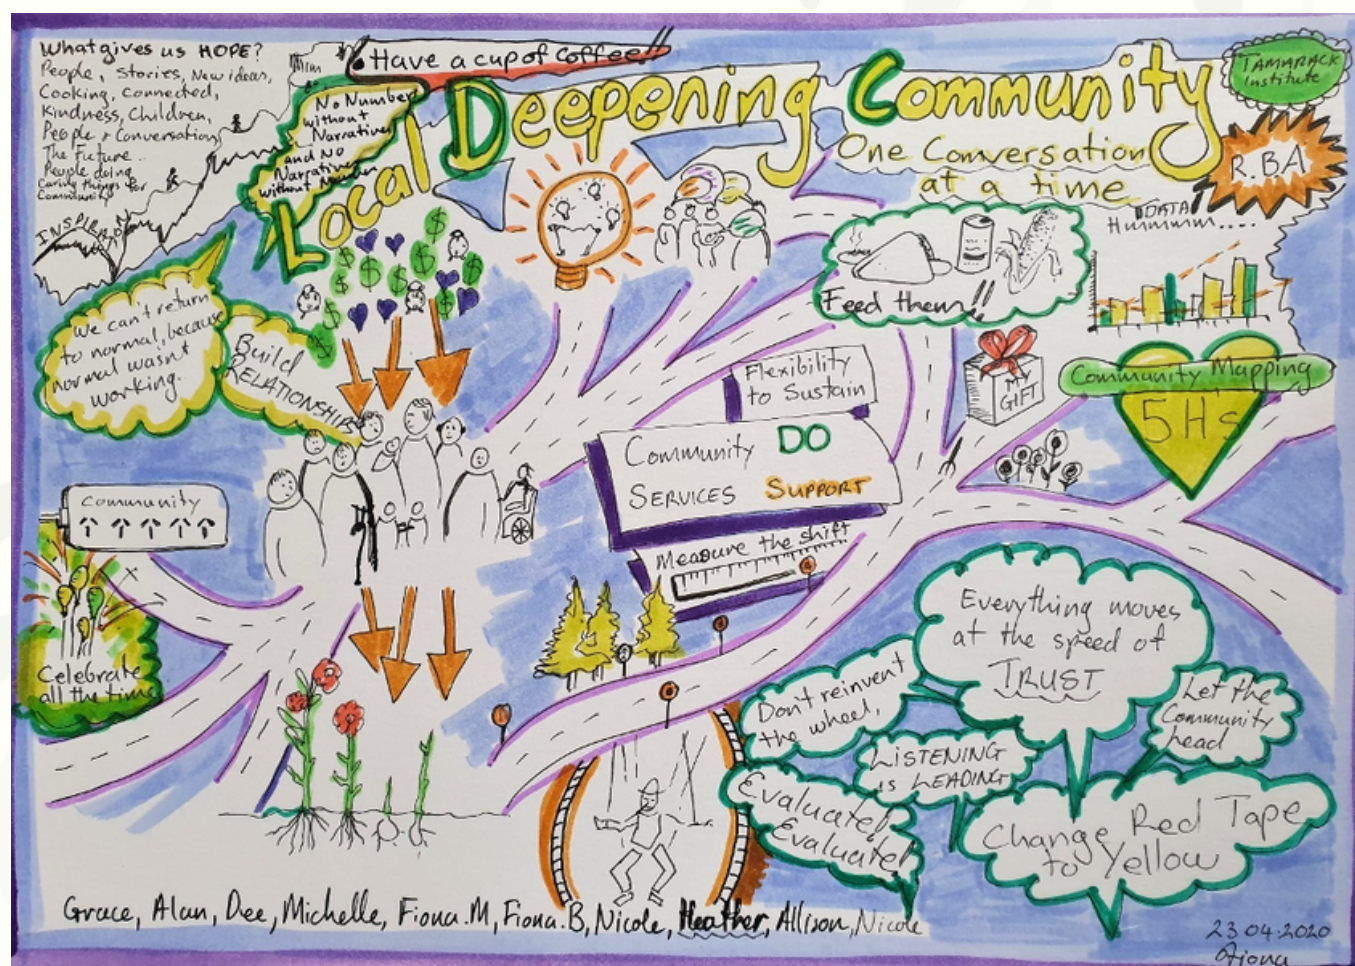 What gives us HOPE?
People, Stories, New ideas,
Cooking, Connected,
Kindness, Children,
People + Conversation
The Future..
People doing
Caring things for
Community
INSPIRATION
Have a cup of coffee!!
No Number
without
Narrative
and No
Narrative
without Number
Local Deepening Community
One Conversation
at a time
TAMARACK
Institute
R.B.A
DATA
Hummmm....
we can't return
to normal, because
normal wasn't
working.
Build
RELATIONSHIPS
$ $ $ $ $ $ $
Feed them!!
MY
GIFT
Community Mapping
5Hs
Flexibility
to Sustain
Community DO
SERVICES SUPPORT
Measure the shift
Community
Celebrate
all the time
Everything moves
at the speed of
TRUST
Don't reinvent
the wheel,
Let the
Community
head
LISTENING
IS LEADING
Evaluate!
Evaluate!
Change Red Tape
to Yellow
Grace, Alan, Dee, Michelle, Fiona.M, Fiona.B, Nicole, Heather, Allison, Nicole
23.04.2020
Fiona